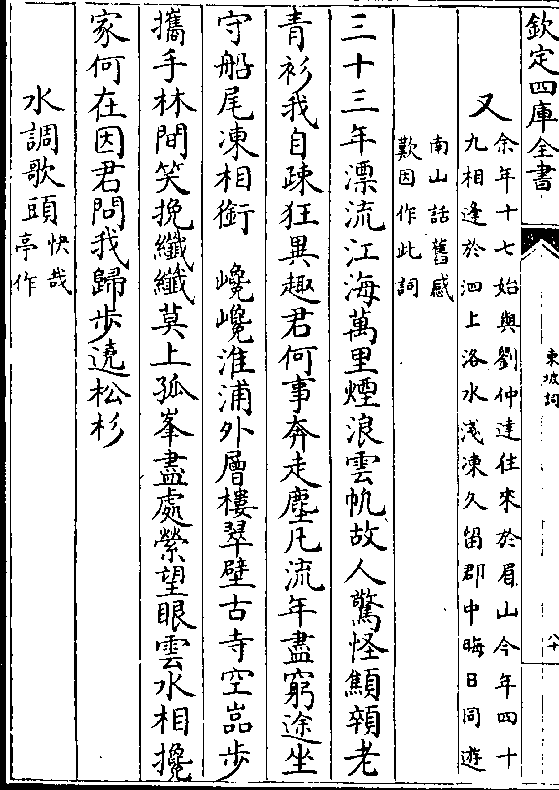 欽定四庫全書
東坡詞
八十
又
余年十七始與劉仲達往來於眉山今年四十
九相逢於泗上洛水淺凍久留郡中晦日同遊
南山話舊感
歎因作此詞
三十三年漂流江海萬里煙浪雲帆故人驚怪顦顇老
青衫我自疎狂異趣君何事奔走塵凡流年盡窮途坐
守船尾凍相銜　巉巉淮浦外層樓翠壁古寺空嵓步
攜手林間笑挽纖纖莫上孤峯盡處縈望眼雲水相攙
家何在因君問我歸步遶松杉
水調歌頭
快哉
亭作